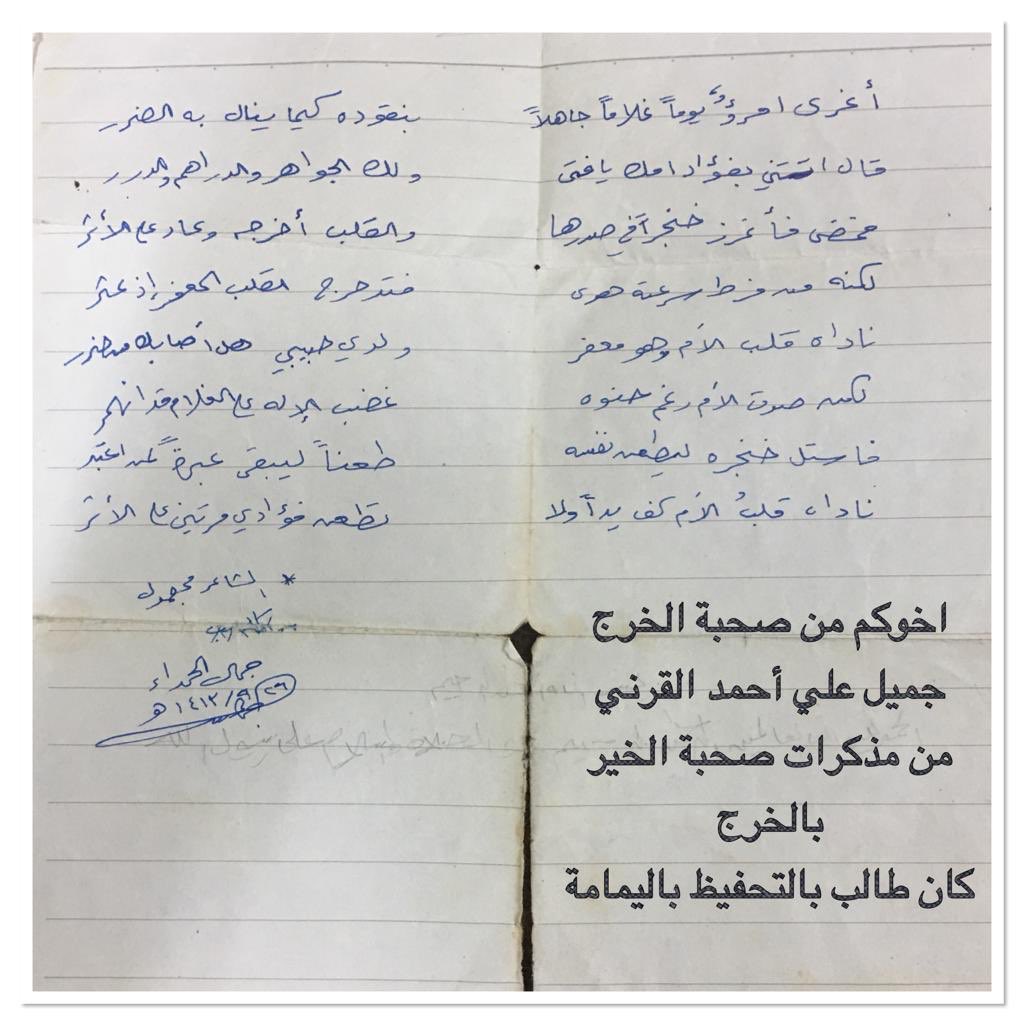 أغرى امرؤٌ يوماً غلاماً جاهلاً بنقوده كيما ينال به الضرر
قال ائتني بفؤاد امك يا فتى ولك الجواهر والدراهم والدرر
فمضى فأغرز خنجراً في صدرها والقلب أخرجه وعاد على الأثر
لكنه من فرط سرعته هوى فتدحرج القلب المعفر إذ عثر
ناداه قلب الأم وهو معفر ولدي حبيبي هل أصابك من ضرر
لكن صوت الأم رغم حنوه غضب الإله على الغلام قد انهمر
فاستل خنجره ليطعن نفسه طعناً ليبقى عبرةً لمن اعتبر
ناداه قلبُ الأم كف يداً ولا تطعن فؤادي مرتين على الأثر
* الشاعر مجهول
جمال الحمداء
٢٦/٩/١٤١٣ هـ
اخوكم من صحبة الخرج
جميل علي أحمد القرني
من مذكرات صحبة الخير
بالخرج
كان طالب بالتحفيظ باليمامة